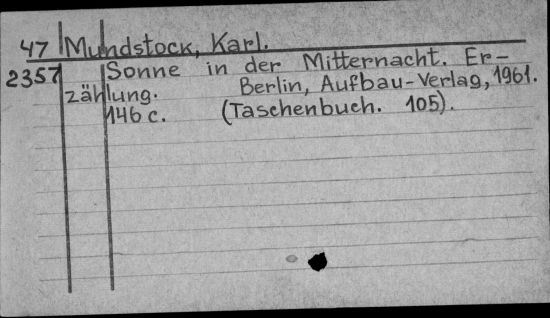 47 Mundstock, Karl.
2357 Sonne in der Mitternacht. Er-
zählung. Berlin, Aufbau-Verlag, 1961.
146 c. (Taschenbuch. 105).